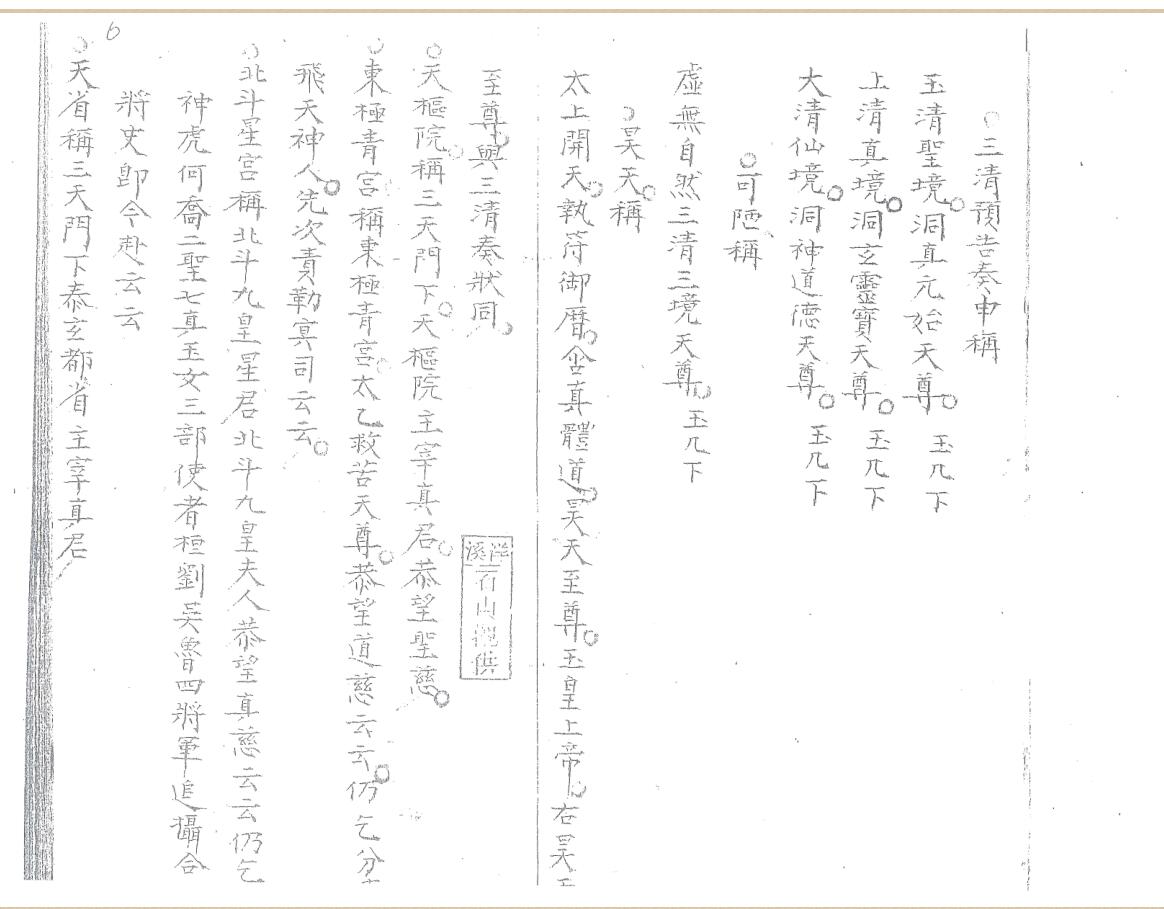 6
○三清預告奏申稱
玉清聖境○洞真元始天尊○　玉几下
上清真境○洞玄靈寶天尊○　玉几下
大清仙境○洞神道德天尊○　玉几下
○可陋稱
虛無自然三清三境天尊○玉几下
○昊天○稱
太上開天○執符御曆○含真體道○昊天至尊○玉皇上帝○右昊
至尊○與三清奏狀同○
○天樞院○稱三天門下○天樞院主宰真君○恭望聖慈○
○東極青宮稱東極青宮○太乙救苦天尊○恭望道慈云云○仍乞分
飛天神人○先次責勒冥司云云○
○北斗星宮稱北斗九皇星君北斗九皇夫人恭望真慈云云仍乞
神虎何喬二聖七真玉女三部使者桓劉吳魯四將軍追攝合
將吏即今赴云云
○天省稱三天門下泰玄都省主宰真君
石山